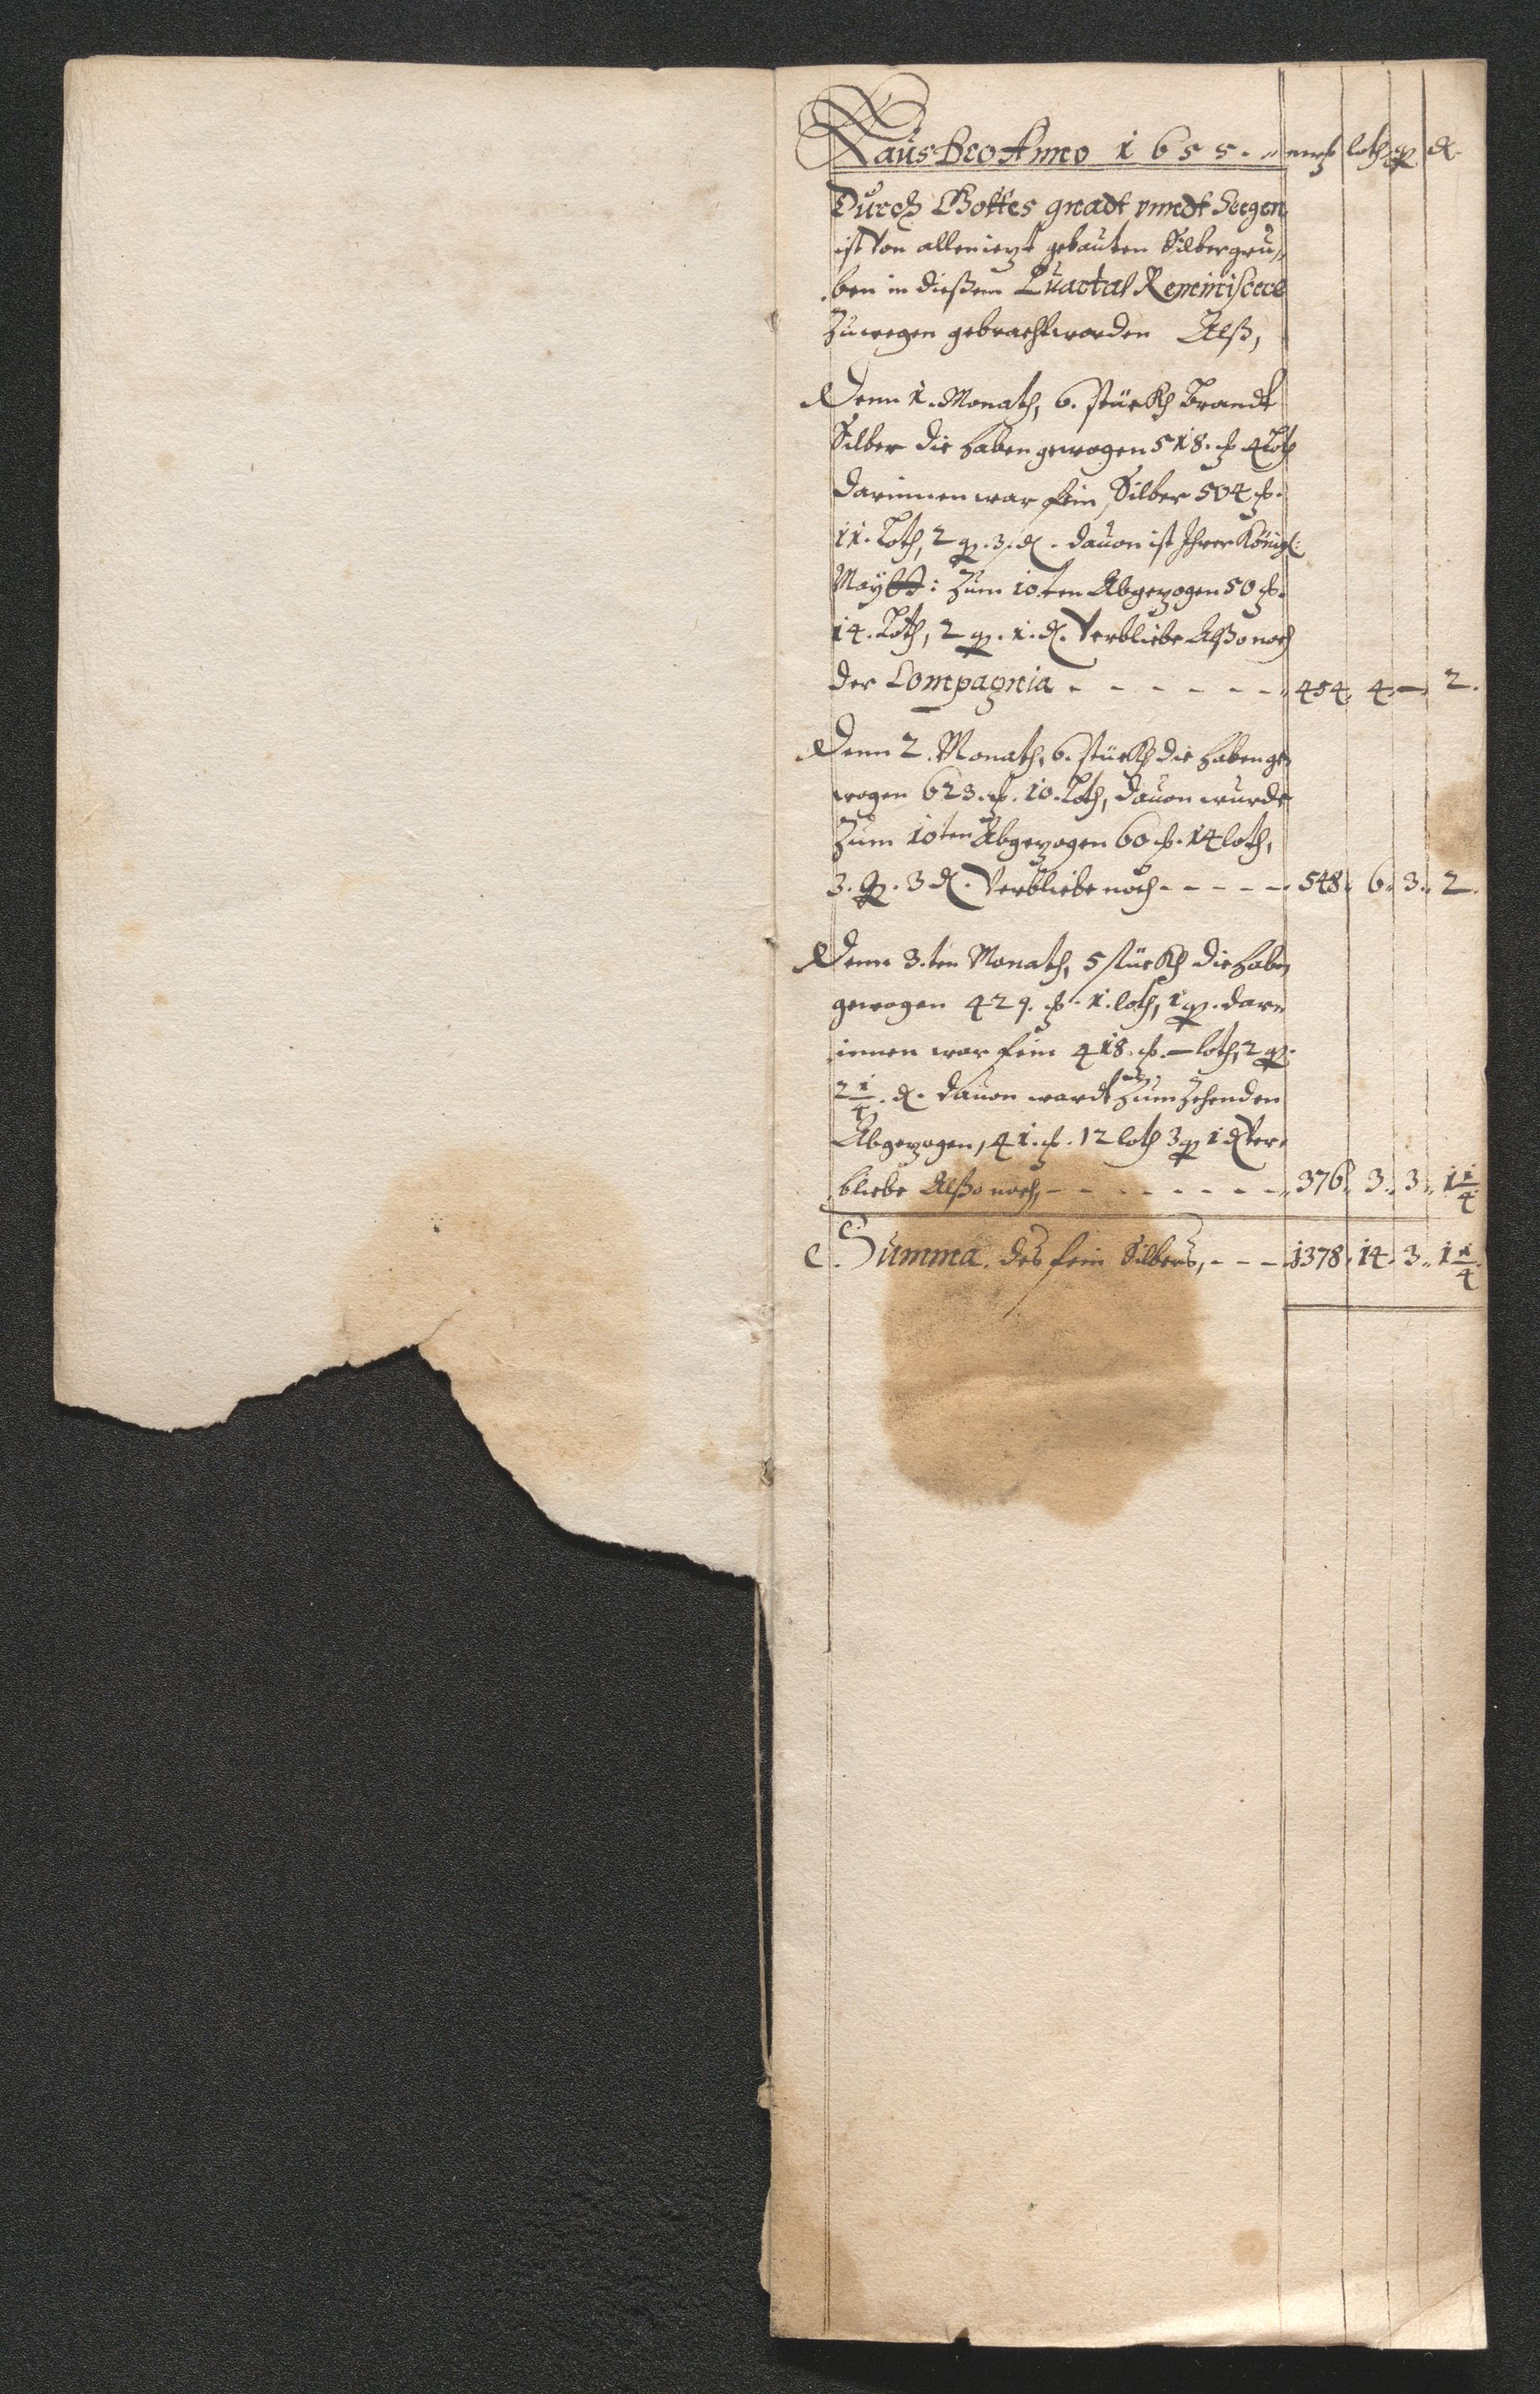 Laus Deo Anno 1655. mrk loth qp d.
Durch Gottes gnadt vnndt Seegen
ist Von allen iezt gebauten Silbergru„
ben in dießem Quartal Reminiscere
Zuwegen gebracht worden Alß,
Denn 1. Monath, 6. stückh Brandt
Silber die haben gewogen 518. mk 4 Loth
Darinnen war fein Silber 504 mk.
11. Loth, 2 qp. 3. d. dauon ist Ihrer Königl:
Maytt: Zum 10ten Abgezogen 50 mk.
14. Loth, 2 qp. 1. d. Verbliebe Alßo noch
der Compagnia - - - - - - - 454. 4. — 2.
Denn 2. Monath, 6. stückh die haben ge„
wogen 623. mk. 10. Loth, dauon wurde
Zum 10ten Abgezogen 60 mk. 14 loth,
3. qp. 3 d. Verbliebe noch - - - - - 548. 6. 3. 2.
Denn 3.ten Monath, 5 stückh die haben
gewogen 429. mk. 1. loth, 1 qp. dar„
innen war fein 418. mk. — loth, 2 qp.
2 1/4. d. dauon wardt Zum Zehenden
Abgezogen, 41. mk. 12 loth 3 qp 1 d Ver„
bliebe Alßo noch, - - - - - - - - 376. 3. 3. 1 1/4
Summa. des fein Silbers, - - - 1378. 14. 3. 1 1/4.